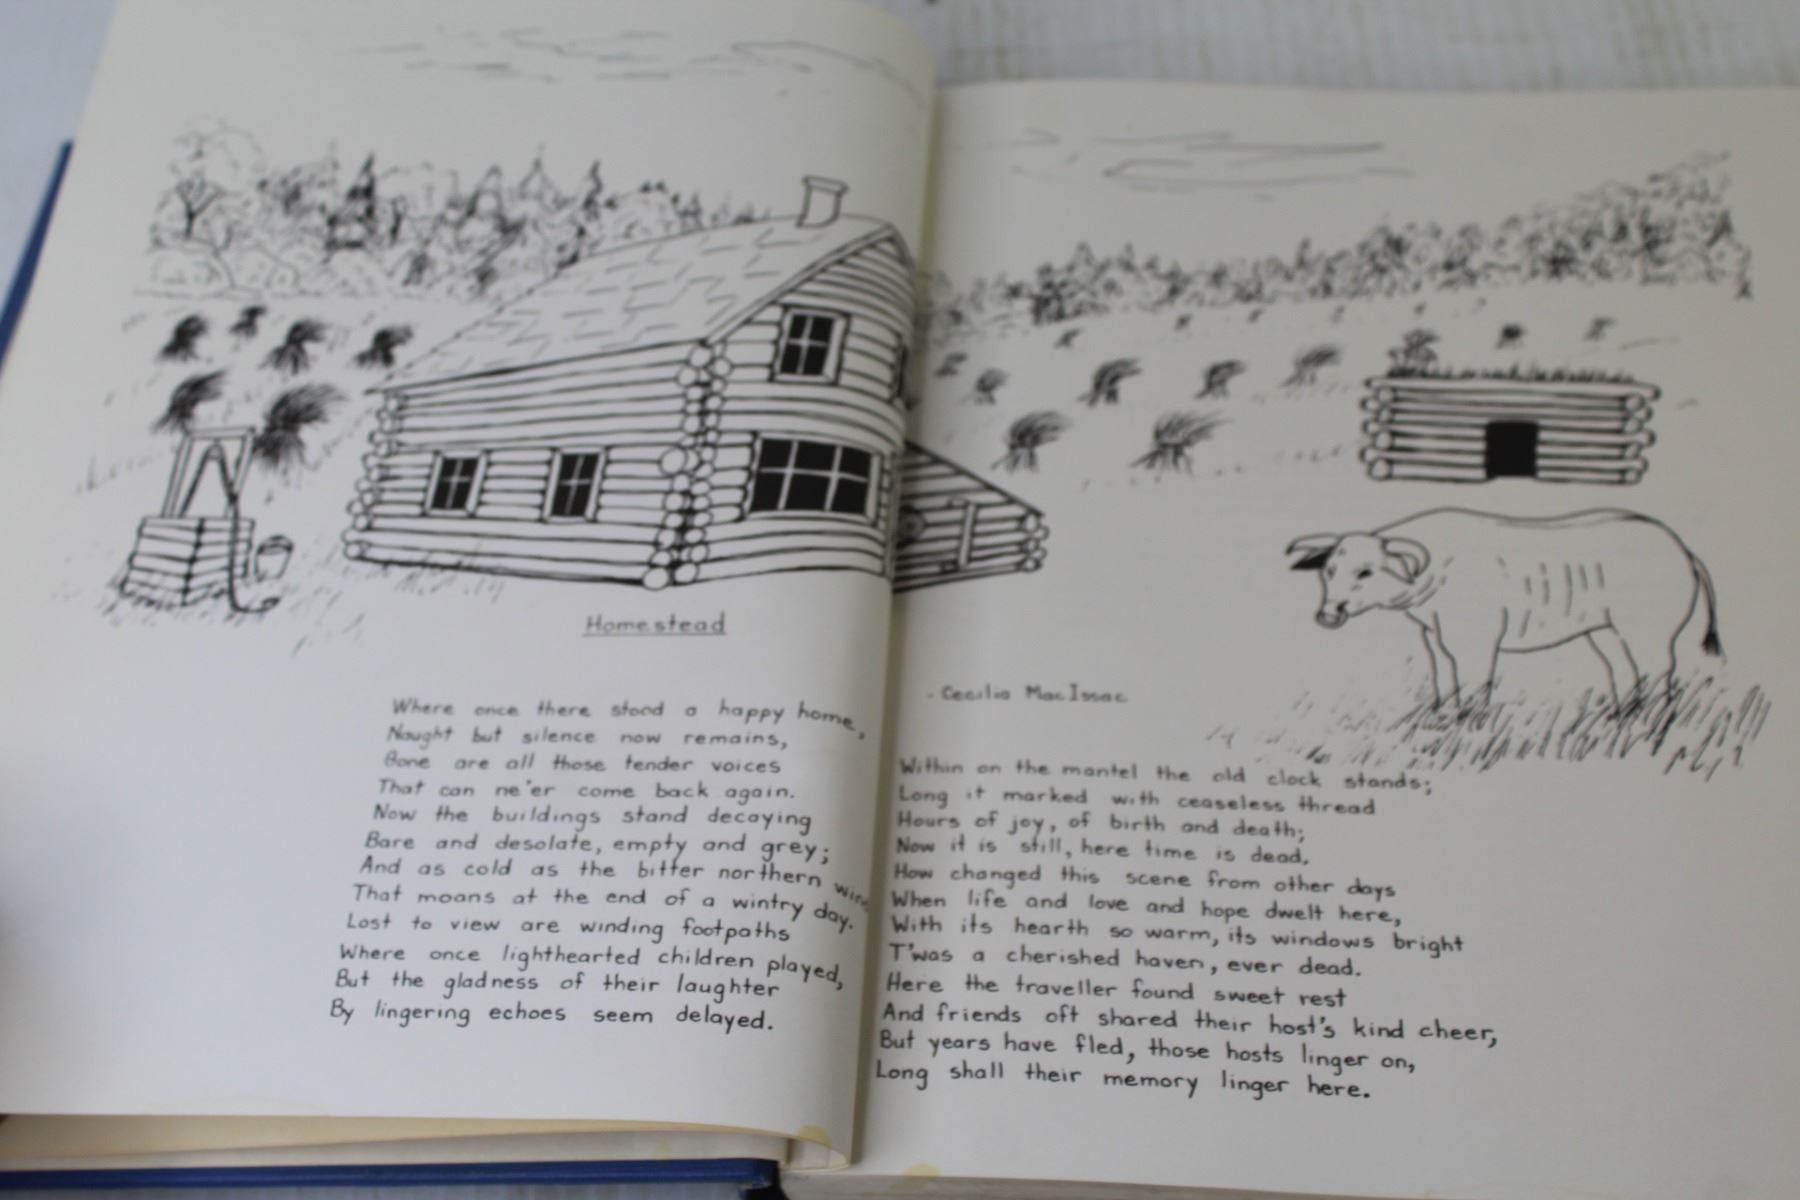 Homestead
- Cecilia MacIssac
Where once there stood a happy home,
Naught but silence now remains,
Gone are all those tender voices
That can ne'er come back again.
Now the buildings stand decaying
Bare and desolate, empty and grey;
And as cold as the bitter northern wind
That moans at the end of a wintry day.
Lost to view are winding footpaths
Where once lighthearted children played,
But the gladness of their laughter
By lingering echoes seem delayed.
Within on the mantel the old clock stands;
Long it marked with ceaseless thread
Hours of joy, of birth and death;
Now it is still, here time is dead.
How changed this scene from other days
When life and love and hope dwelt here,
With its hearth so warm, its windows bright
T'was a cherished haven, ever dead.
Here the traveller found sweet rest
And friends oft shared their host's kind cheer,
But years have fled, those hosts linger on,
Long shall their memory linger here.